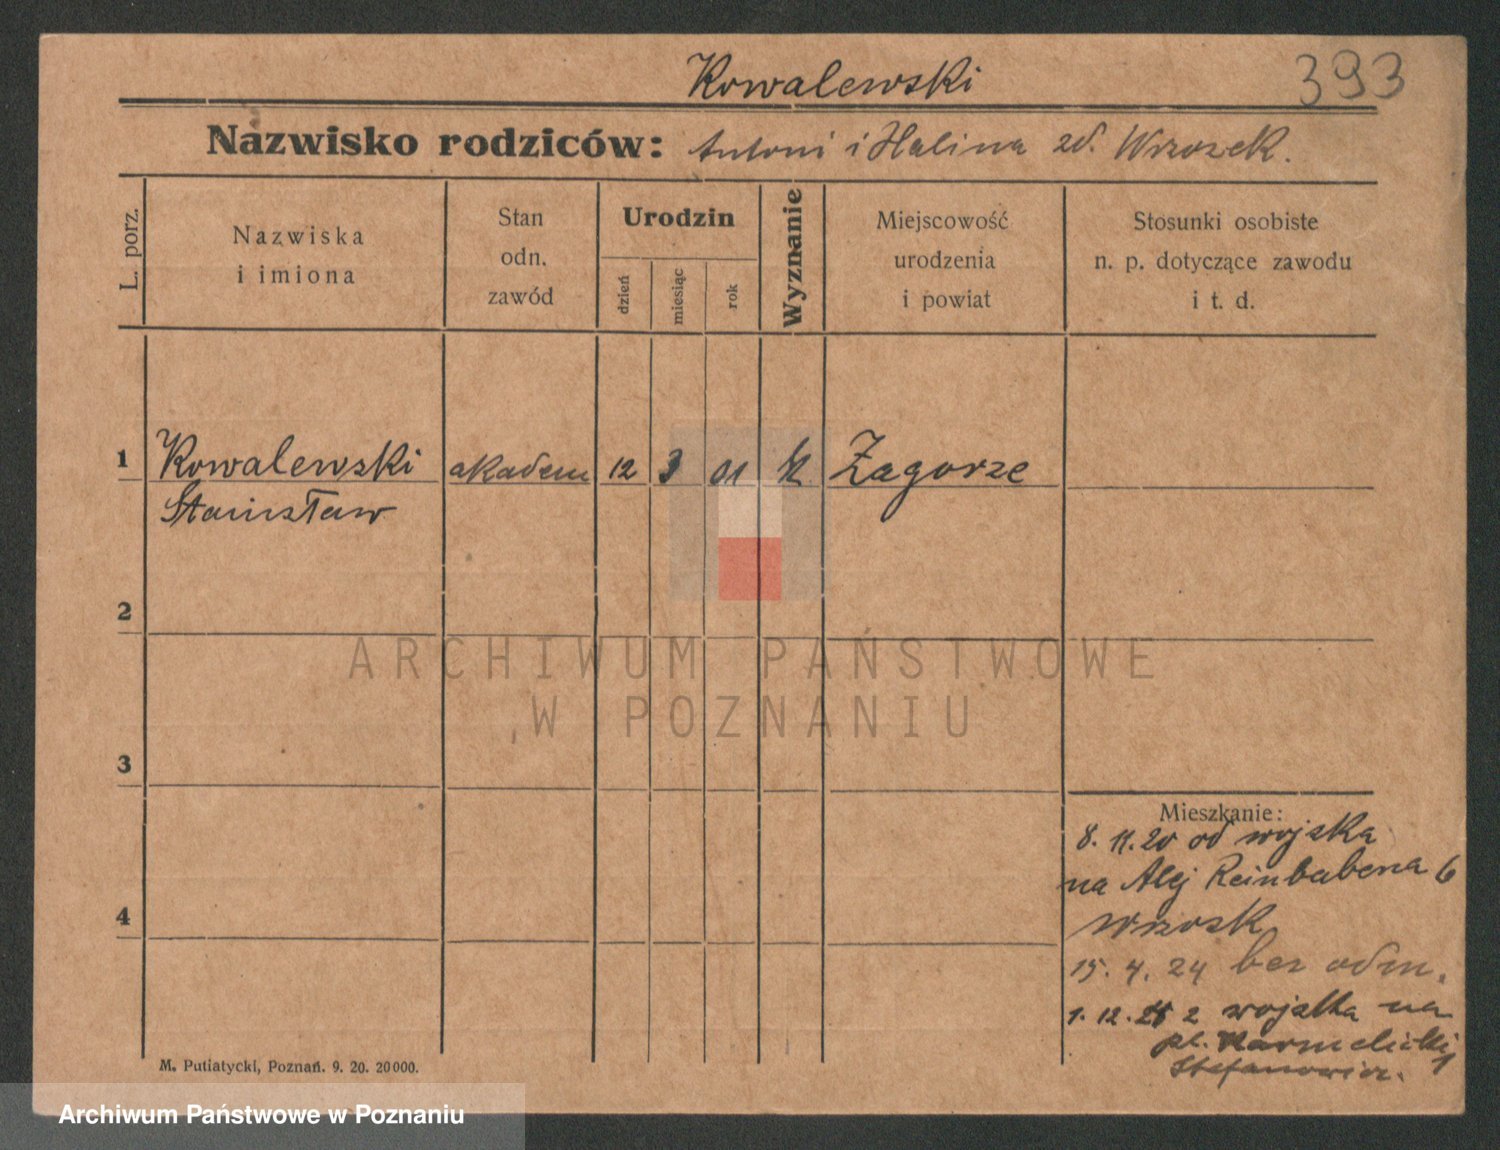 Kowalewski
393
Nazwisko rodziców: Antoni i Halina zd. Wrzosek.
L. porz.
Nazwiska
i imiona
Stan
odn.
zawód
Urodzin
dzień
miesiąc
rok
Wyznanie
Miejscowość
urodzenia
i powiat
Stosunki osobiste
n. p. dotyczące zawodu
i t. d.
1 Kowalewski akadem 12 3 01 Zagorze
Stanisław
2
3
4
Mieszkanie:
8. 11. 20 od wojska
na Alej Reinbabena 6
Wrzosk
15. 4. 24 bez odm.
1. 12. 25 z wojska na
pl. Karmelicki 1
Stefanowicz.
M. Putiatycki, Poznań. 9. 20. 20000.
ARCHIWUM PAŃSTWOWE
W POZNANIU
Archiwum Państwowe w Poznaniu